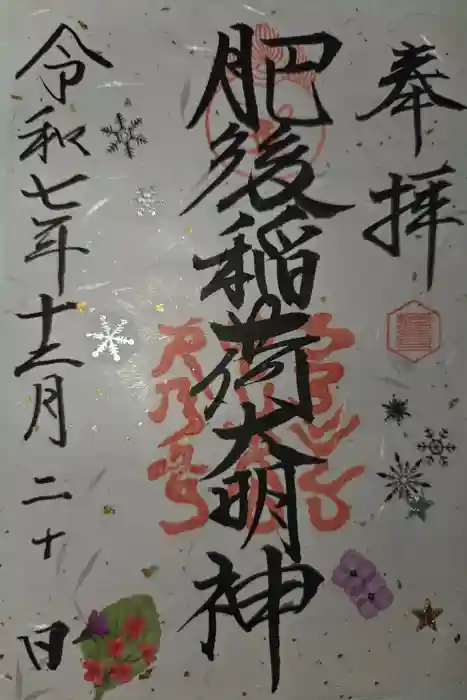 奉拝
肥後稲荷大明神
令和七年十二月二十日